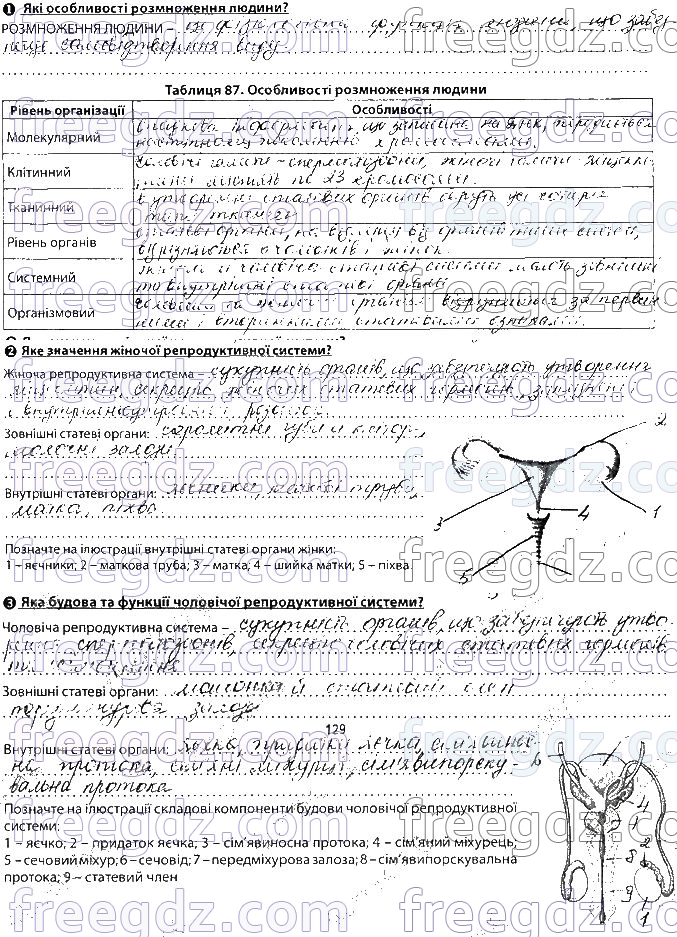 1 Які особливості розмноження людини?
РОЗМНОЖЕННЯ ЛЮДИНИ – це фізіологічна функція людини, що забез
печує самовідтворення виду
Таблиця 87. Особливості розмноження людини
Рівень організації Особливості
Молекулярний Спадкова інформація, що записана на ДНК, передається
наступному поколінню хромосомами.
Клітинний Чоловічі гамети – сперматозоїди, жіночі гамети – яйцеклі-
тини містять по 23 хромосоми.
Тканинний В утворенні статевих органів беруть усі чотири
типи тканин
Рівень органів статеві органи, на відміну від органів інших систем,
відрізняються в чоловіків і жінок
Системний Жіноча й чоловіча статеві системи мають зовнішні
та внутрішні статеві органи
Організмовий Чоловічі та жіночі організми відрізняються за первин
ними і вторинними статевими ознаками.
2 Яке значення жіночої репродуктивної системи?
Жіноча репродуктивна система – сукупність органів, що забезпечують утворення
яйцеклітин, секрецію жіночих статевих гормонів, запліднення
і внутрішньоутробний розвиток
Зовнішні статеві органи: соромітні губи і клітор,
молочні залози
Внутрішні статеві органи: яєчники, маткові труби,
матка, піхва
Позначте на ілюстрації внутрішні статеві органи жінки:
1 – яєчники; 2 – маткова труба; 3 – матка; 4 – шийка матки; 5 – піхва.
2
3
4
1
5
3 Яка будова та функції чоловічої репродуктивної системи?
Чоловіча репродуктивна система – сукупність органів, що забезпечують утво
рення сперматозоїдів, секрецію чоловічих статевих гормонів
та запліднення
Зовнішні статеві органи: мошонка й статевий член
передміхурова залоза
129
Внутрішні статеві органи: яєчка, придатки яєчка, сім'явинос-
на протока, сім'яні міхурці, сім'явипорскувальна
вальна протока
Позначте на ілюстрації складові компоненти будови чоловічої репродуктивної
системи:
1 – яєчко; 2 – придаток яєчка; 3 – сім'явиносна протока; 4 – сім'яний міхурець;
5 – сечовий міхур; 6 – сечовід; 7 – передміхурова залоза; 8 – сім'явипорскувальна
протока; 9 – статевий член
4
7
2
8
9
1
freegdz.com